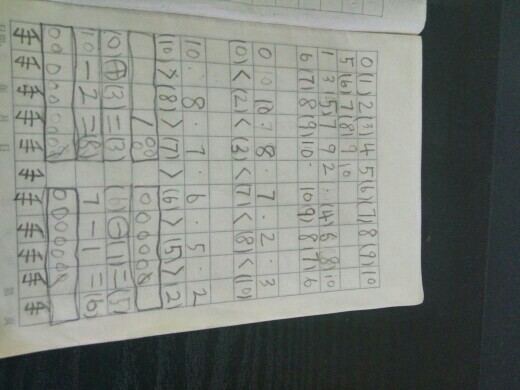 0 (1) 2 (3) 4 5 (6) (7) 8 (9) 10
5 (6) 7 (8) 9 10
1 3 (5) 7 9 2 (4) 6 8 10
6 (7) 8 (9) 10 . 10 (9) 8 (7) 6
0 10 . 8 . 7 . 2 . 3
(0) < (2) < (3) < (7) < (8) < (10)
10 . 8 . 7 . 6 . 5 . 2
(10) > (8) > (7) > (6) > (5) > (2)
(0) + (3) = (3) (6) - (1) = (5)
10 - 2 = (8) 7 - 1 = (6)